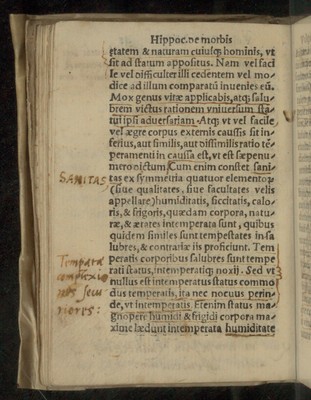 Hippoc. de morbis
ętatem & naturam cuiusq; hominis, vt
sit ad statum appositus. Nam vel faci
le vel difficulter illi cedentem vel mo-
dice ad illum comparatũ inuenies eũ.
Mox genus vitæ applicabis, atq; salu-
brem victus rationem vniuersum sta-
tui ipsi aduersariam. Atq; vt vel facile
vel ægre corpus externis caussis sit in-
ferius, aut similis, aut dissimilis ratio tẽ-
peramenti in caussa est, vt est sæpenu-
mero dictum. Cum enim constet sani-
SANITAS
tas ex symmetria quatuor elementorũ
(siue qualitates, siue facultates velis
appellare) humiditatis, siccitatis, calo-
ris, & frigoris, quædam corpora, natu-
ræ, & ætates intemperata sunt, quibus
quidem similes sunt tempestates insa
lubres, & contrariæ iis proficiunt. Tem
peratis corporibus salubres sunt tempe
Temperatę
rati status, intemperatiq; noxij. Sed vt
complexio
nullus est intemperatus status commo
nes secu
dus temperatis, ita nec nocuus perin-
riores:
de, vt intemperatis. Etenim status ma-
gnopere humidi & frigidi corpora ma-
xime lædunt intemperata humiditate